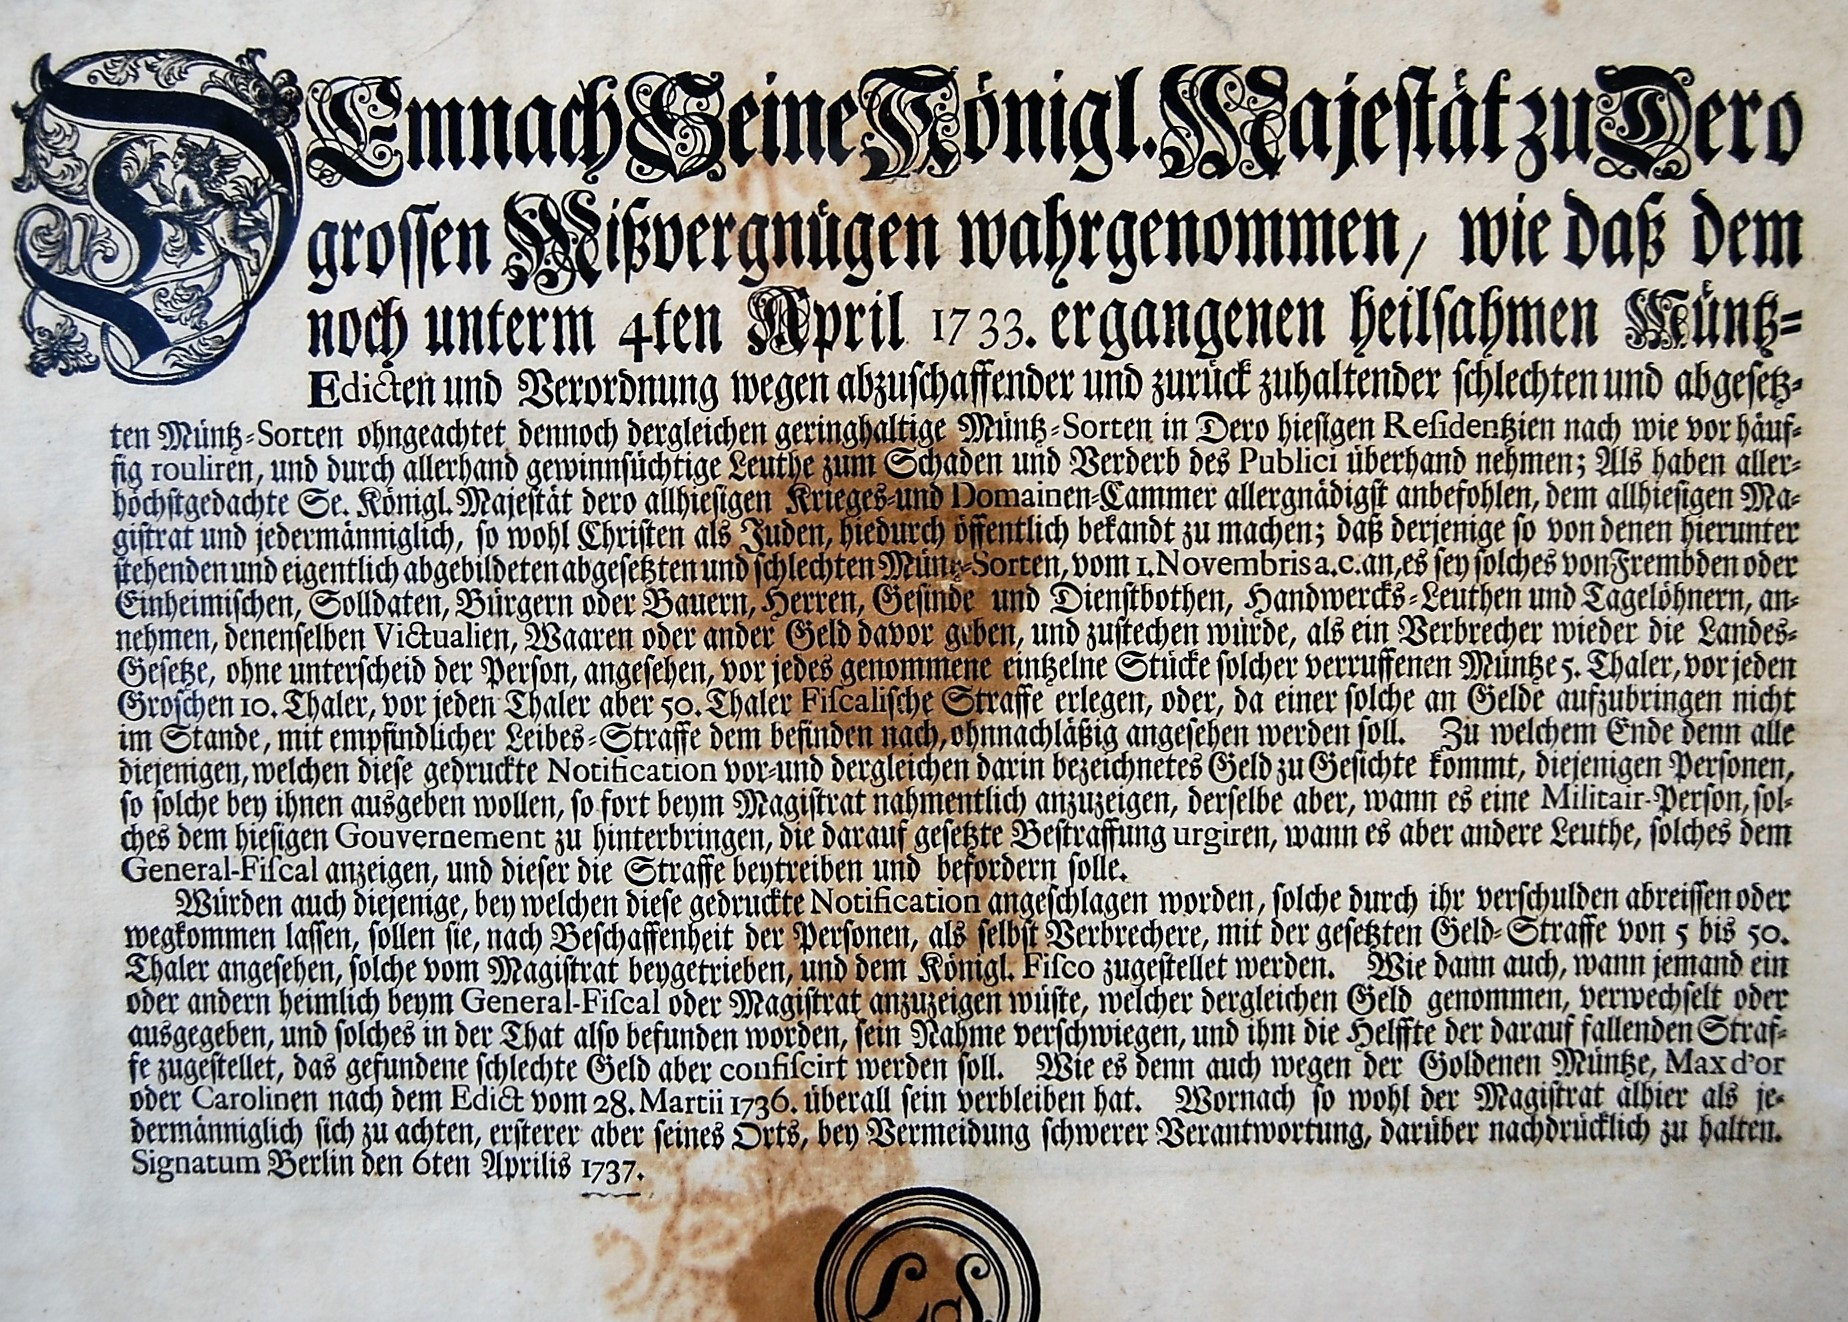 DEmnach Seine Königl. Majestät zu Dero
grossen Mißvergnügen wahrgenommen, wie daß dem
noch unterm 4ten April 1733. ergangenen heilsahmen Müntz-
Edicten und Verordnung wegen abzuschaffender und zurück zuhaltender schlechten und abgesetz-
ten Müntz-Sorten ohngeachtet dennoch dergleichen geringhaltige Müntz-Sorten in Dero hiesigen Residentzien nach wie vor häuf-
fig rouliren, und durch allerhand gewinnsüchtige Leuthe zum Schaden und Verderb des Publici überhand nehmen; Als haben aller-
höchstgedachte Se. Königl. Majestät dero allhiesigen Krieges-und Domainen-Cammer allergnädigst anbefohlen, dem allhiesigen Ma-
gistrat und jedermänniglich, so wohl Christen als Juden, hiedurch öffentlich bekandt zu machen; daß derjenige so von denen hierunter
stehenden und eigentlich abgebildeten abgesetzten und schlechten Müntz-Sorten, vom 1. Novembris a.c. an, es sey solches von Frembden oder
Einheimischen, Solldaten, Bürgern oder Bauern, Herren, Gesinde und Dienstbothen, Handwercks-Leuthen und Tagelöhnern, an-
nehmen, denenselben Victualien, Waaren oder ander Geld davor geben, und zustechen würde, als ein Verbrecher wieder die Landes-
Gesetze, ohne unterscheid der Person, angesehen, vor jedes genommene eintzelne Stücke solcher verruffenen Müntze 5. Thaler, vor jeden
Groschen 10. Thaler, vor jeden Thaler aber 50. Thaler Fiscalische Straffe erlegen, oder, da einer solche an Gelde aufzubringen nicht
im Stande, mit empfindlicher Leibes-Straffe dem befinden nach, ohnnachläßig angesehen werden soll. Zu welchem Ende denn alle
diejenigen, welchen diese gedruckte Notification vor-und dergleichen darin bezeichnetes Geld zu Gesichte kommt, diejenigen Personen,
so solche bey ihnen ausgeben wollen, so fort beym Magistrat nahmentlich anzuzeigen, derselbe aber, wann es eine Militair-Person, sol-
ches dem hiesigen Gouvernement zu hinterbringen, die darauf gesetzte Bestraffung urgiren, wann es aber andere Leuthe, solches dem
General-Fiscal anzeigen, und dieser die Straffe beytreiben und befordern solle.
Würden auch diejenige, bey welchen diese gedruckte Notification angeschlagen worden, solche durch ihr verschulden abreissen oder
wegkommen lassen, sollen sie, nach Beschaffenheit der Personen, als selbst Verbrechere, mit der gesetzten Geld-Straffe von 5 bis 50.
Thaler angesehen, solche vom Magistrat beygetrieben, und dem Königl. Fisco zugestellet werden. Wie dann auch, wann jemand ein
oder andern heimlich beym General-Fiscal oder Magistrat anzuzeigen wüste, welcher dergleichen Geld genommen, verwechselt oder
ausgegeben, und solches in der That also befunden worden, sein Nahme verschwiegen, und ihm die Helffte der darauf fallenden Straf-
fe zugestellet, das gefundene schlechte Geld aber confiscirt werden soll. Wie es denn auch wegen der Goldenen Müntze, Max d'or
oder Carolinen nach dem Edict vom 28. Martii 1736. überall sein verbleiben hat. Wornach so wohl der Magistrat alhier als je-
dermänniglich sich zu achten, ersterer aber seines Orts, bey Vermeidung schwerer Verantwortung, darüber nachdrücklich zu halten.
Signatum Berlin den 6ten Aprilis 1737.
LS